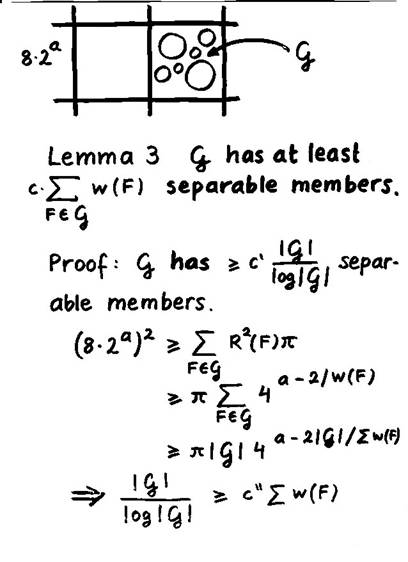 8·2ᵃ
G
Lemma 3 G has at least
c·∑ w(F) separable members.
F∈G
Proof: G has ≥ c' |G|/log|G| separ-
able members.
(8·2ᵃ)² ≥ ∑_{F∈G} R²(F)π
≥ π ∑_{F∈G} 4^{a-2/w(F)}
≥ π|G| 4^{a-2|G|/∑w(F)}
⇒ |G|/log|G| ≥ c" ∑ w(F)